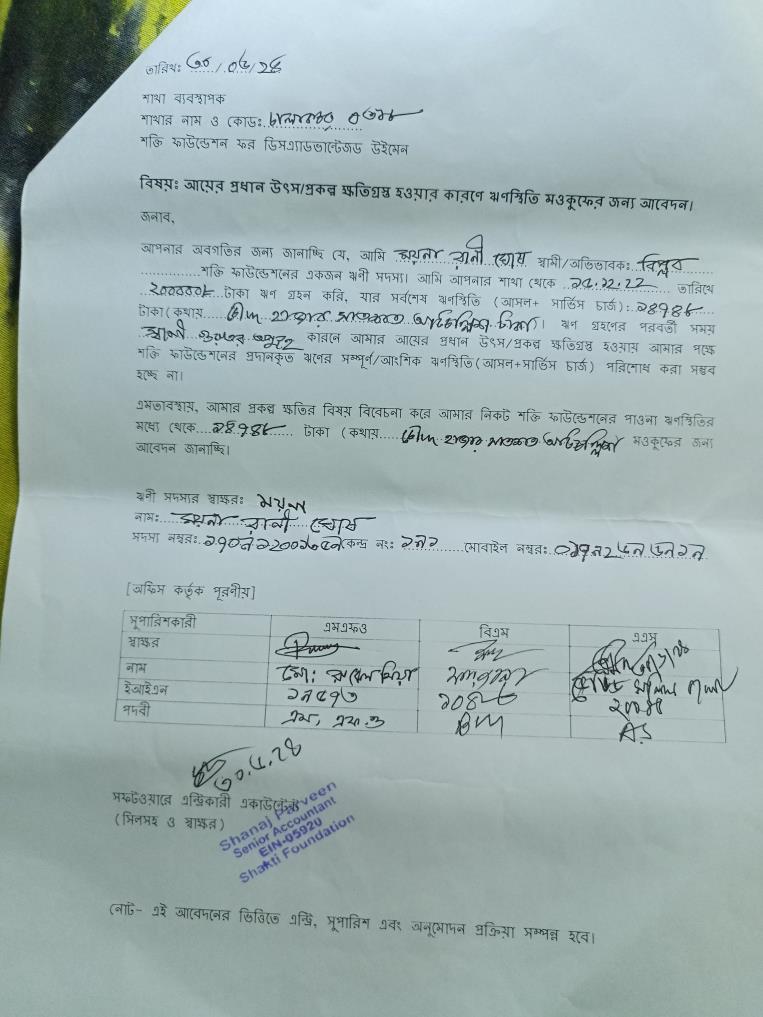 তারিখ: ৩০/০৫/২৪
শাখা ব্যবস্থাপক
শাখার নাম ও কোড:
শক্তি ফাউন্ডেশন ফর ডিসএ্যাডভান্টেজড উইমেন
বিষয়: আয়ের প্রধান উৎস/প্রকল্প ক্ষতিগ্রস্ত হওয়ার কারণে ঋণস্থিতি মওকুফের জন্য আবেদন।
জনাব,
আপনার অবগতির জন্য জানাচ্ছি যে, আমি ময়না রানী ঘোষ স্বামী/অভিভাবক: বিপ্লব
শক্তি ফাউন্ডেশনের একজন ঋণী সদস্য। আমি আপনার শাখা থেকে ১৫.১২.২২ তারিখে
টাকা ঋণ গ্রহন করি, যার সর্বশেষ ঋণস্থিতি (আসল+ সার্ভিস চার্জ): ১৪৭৪৮
টাকা (কথায় চৌদ্দ হাজার সাতশত আটচল্লিশ টাকা। ঋণ গ্রহণের পরবর্তী সময়
স্বামী গুরুতর অসুস্থ কারনে আমার আয়ের প্রধান উৎস/প্রকল্প ক্ষতিগ্রস্ত হওয়ায় আমার পক্ষে
শক্তি ফাউন্ডেশনের প্রদানকৃত ঋণের সম্পূর্ণ/আংশিক ঋণস্থিতি(আসল+সার্ভিস চার্জ) পরিশোধ করা সম্ভব
হচ্ছে না।
এমতাবস্থায়, আমার প্রকল্প ক্ষতির বিষয় বিবেচনা করে আমার নিকট শক্তি ফাউন্ডেশনের পাওনা ঋণস্থিতির
মধ্যে থেকে টাকা (কথায় চৌদ্দ হাজার সাতশত আটচল্লিশ মওকুফের জন্য
আবেদন জানাচ্ছি।
ঋণী সদস্যর স্বাক্ষর: ময়না
নাম: ময়না রানী ঘোষ
সদস্য নম্বর: কেন্দ্র নং: ১৯১ মোবাইল নম্বর:
[অফিস কর্তৃক পূরণীয়]
সুপারিশকারী এমএফও বিএম এএস
স্বাক্ষর
নাম মো: রাসেল মিয়া
ইআইএন
পদবী এম, এফ.ও BM AS
৩০.৫.২৪
সফটওয়ারে এন্ট্রিকারী একাউন্টেন্ট
(সিলসহ ও স্বাক্ষর)
Shanaj Parveen
Senior Accountant
EIN-05920
Shakti Foundation
নোট- এই আবেদনের ভিত্তিতে এন্ট্রি, সুপারিশ এবং অনুমোদন প্রক্রিয়া সম্পন্ন হবে।